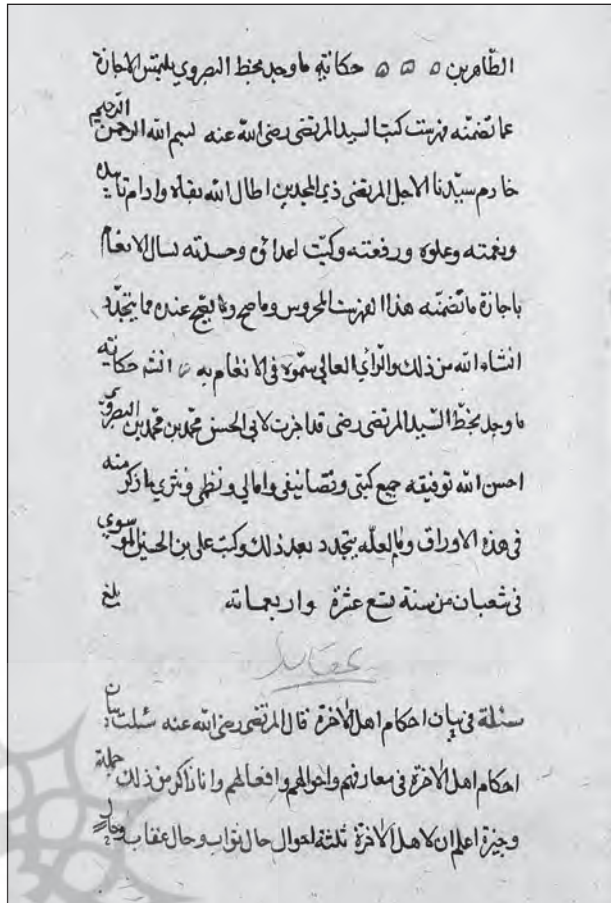 الطّاهرين ۵ ۵ ۵ حكاية ما وجد بخط البصروي يلتمس الاجازة
عما تضمّنه فهرست كتب السيد المرتضى رضي الله عنه لبسم الله الرحمن الرحيم
خادم سيّدنا الاجل المرتضى ذي المجدين اطال الله بقاه وادام تاييده
ونعمته وعلوه ورفعته وكبت اعدائه وحسدته يسال الانعام
باجازة ما تضمّنه هذا الفهرست المحروس وما صح وما يصح عنده مما يتجدّد
انشاء الله من ذلك والرأي العالي سموه في الانعام به انشه حكاية
ما وجد بخطّ السّيد المرتضى رضى قد اجزت لابي الحسن محمّد بن محمّد بن البصروي
احسن الله توفيقه جميع كتبي وتصانيفي وامالي ونظمي ونثري ما ذكر منه
في هذه الاوراق وما لعلّه يتجدد بعد ذلك وكتب علي بن الحسين الموسوي
في شعبان من سنة سبع عشرة واربعماته
بلغ
عقايد
سئلة في بيان احكام اهل الآخرة قال المرتضى رضي الله عنه سئلت بيان
احكام اهل الآخرة في معارفهم واحوالهم وافعالهم وانا ذاكر من ذلك جملة
وجيزة اعلم ان لاهل الآخرة ثلثة احوال حال ثواب وحال عقاب وحال